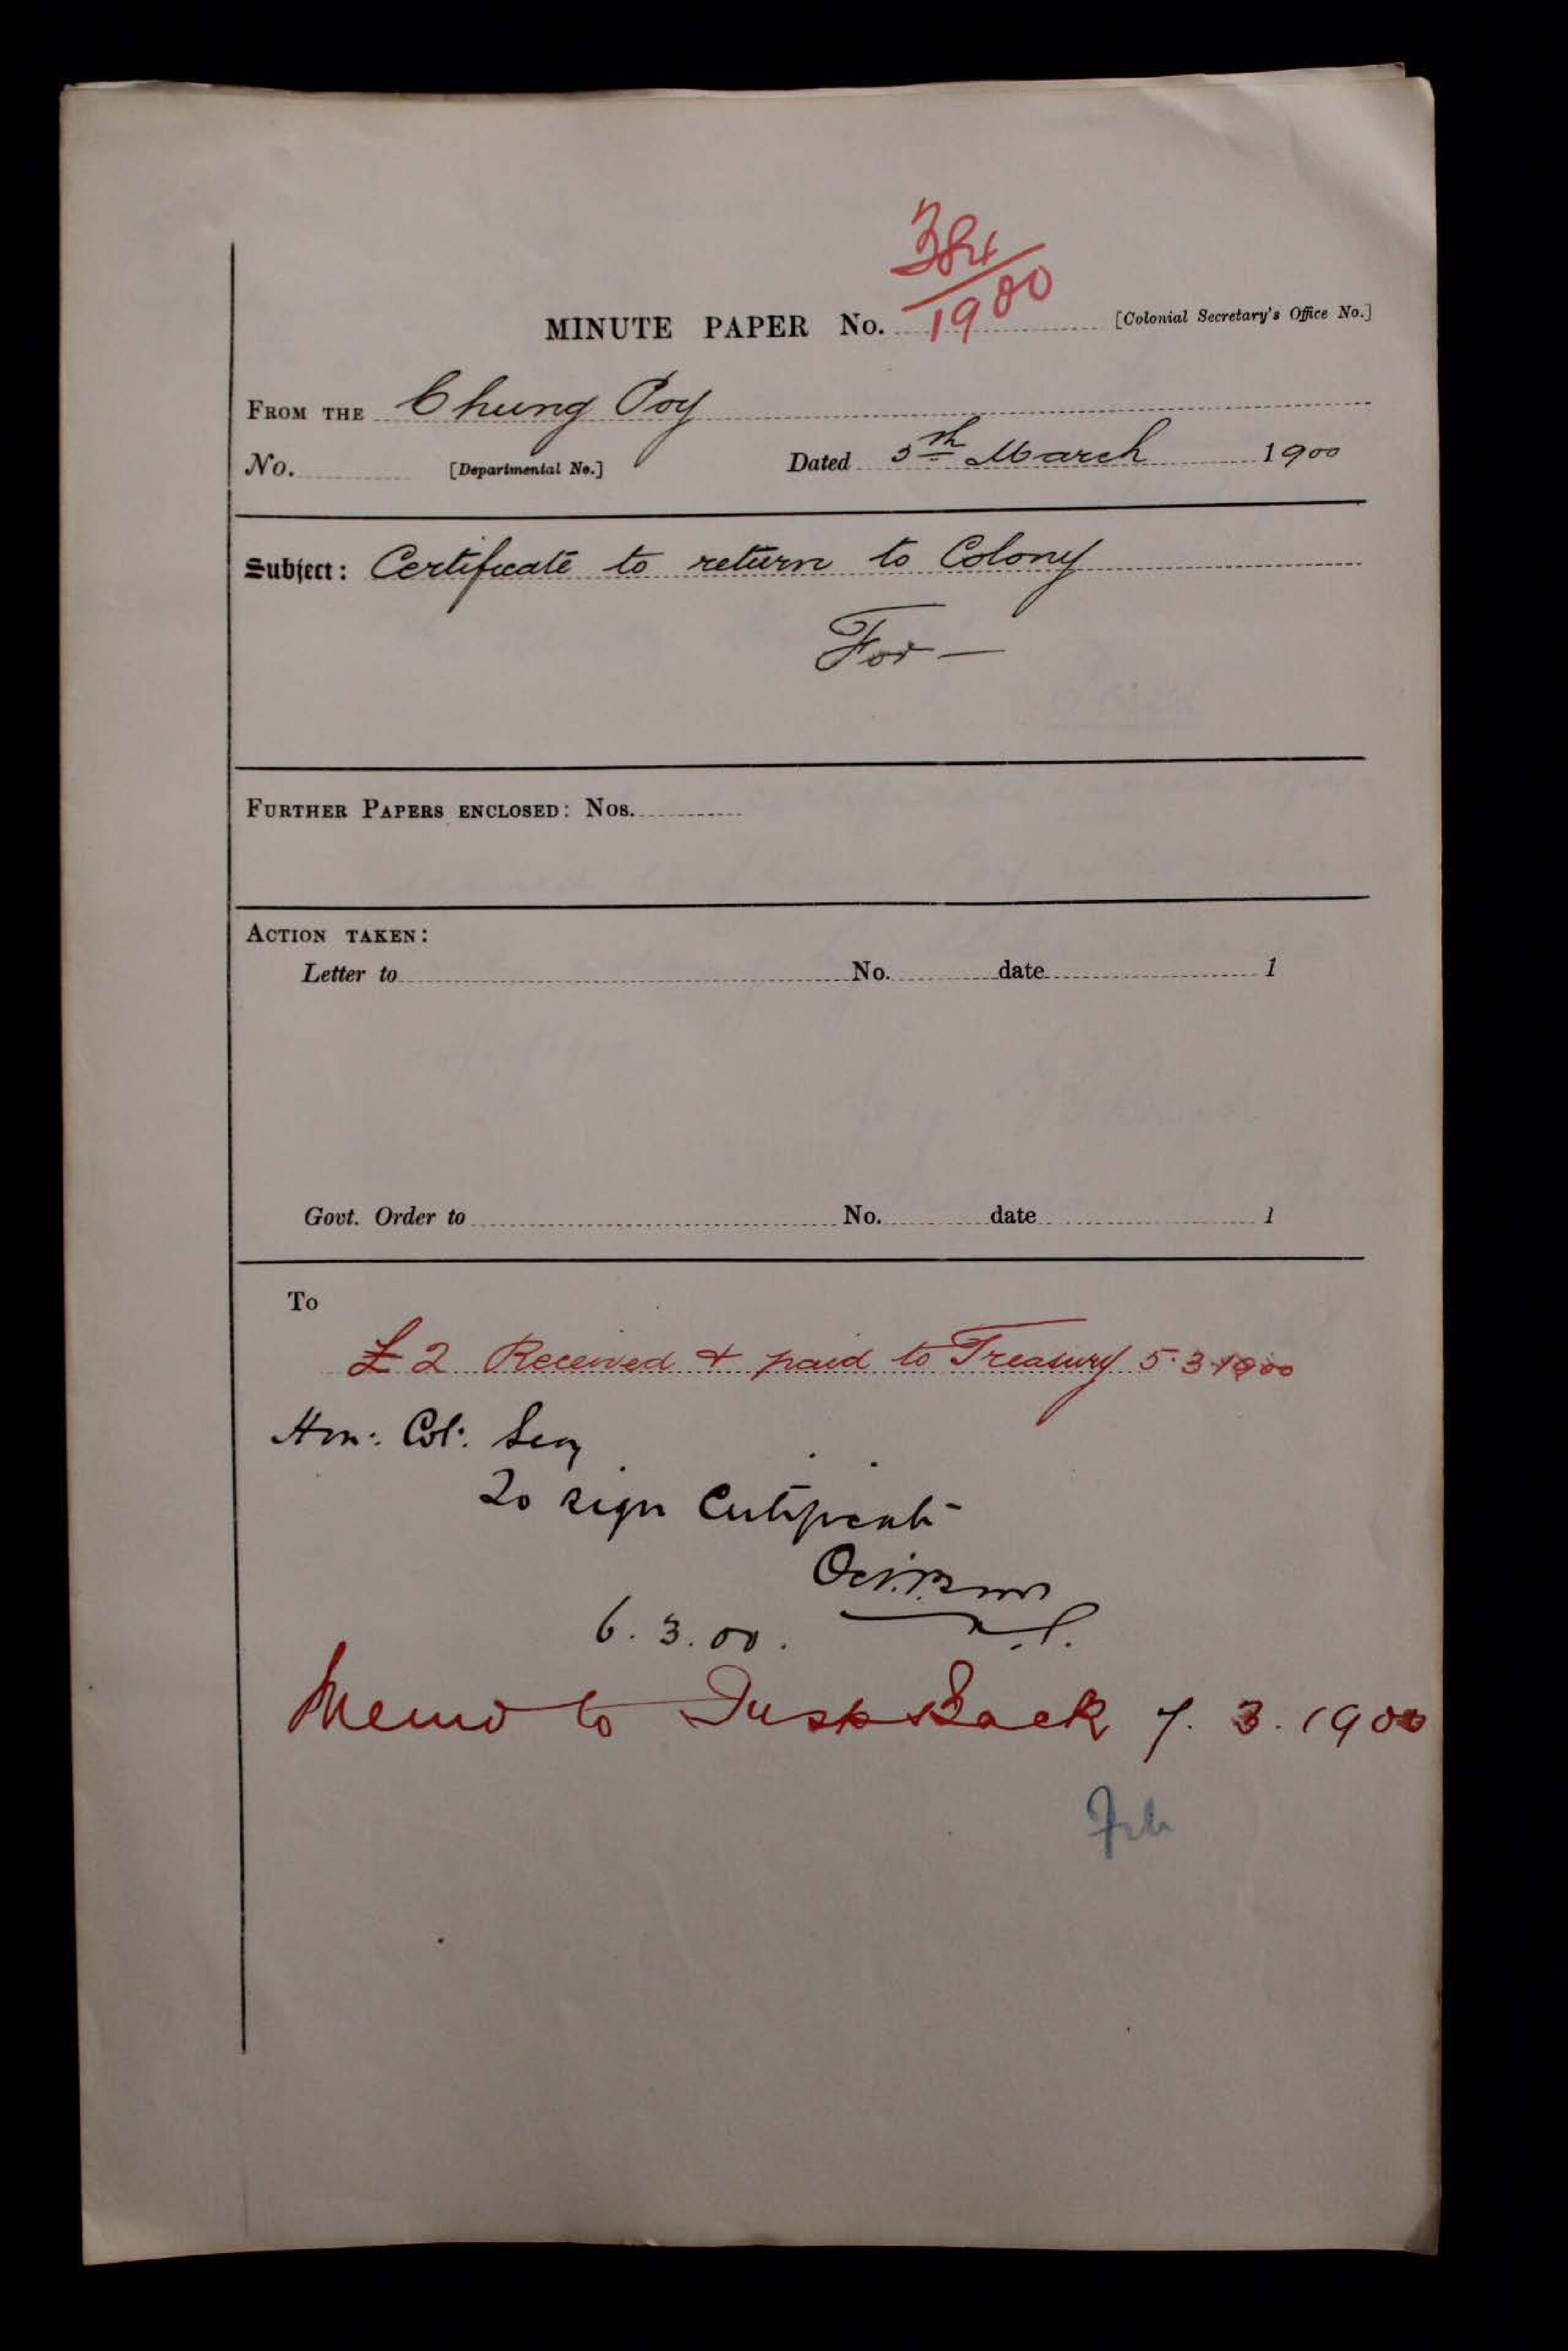 384
1900
MINUTE PAPER No. [Colonial Secretary's Office No.]
FROM THE Chung Poy
No. [Departmental No.] Dated 5th March 1900
Subject: Certificate to return to Colony
For —
FURTHER PAPERS ENCLOSED: Nos.
ACTION TAKEN:
Letter to No. date 1
Govt. Order to No. date 1
To
£2 Received & paid to Treasury 5.3.1900
Hon: Col: Secy
To sign Certificate
6.3.00.
Memo to Insp Back 7.3.1900